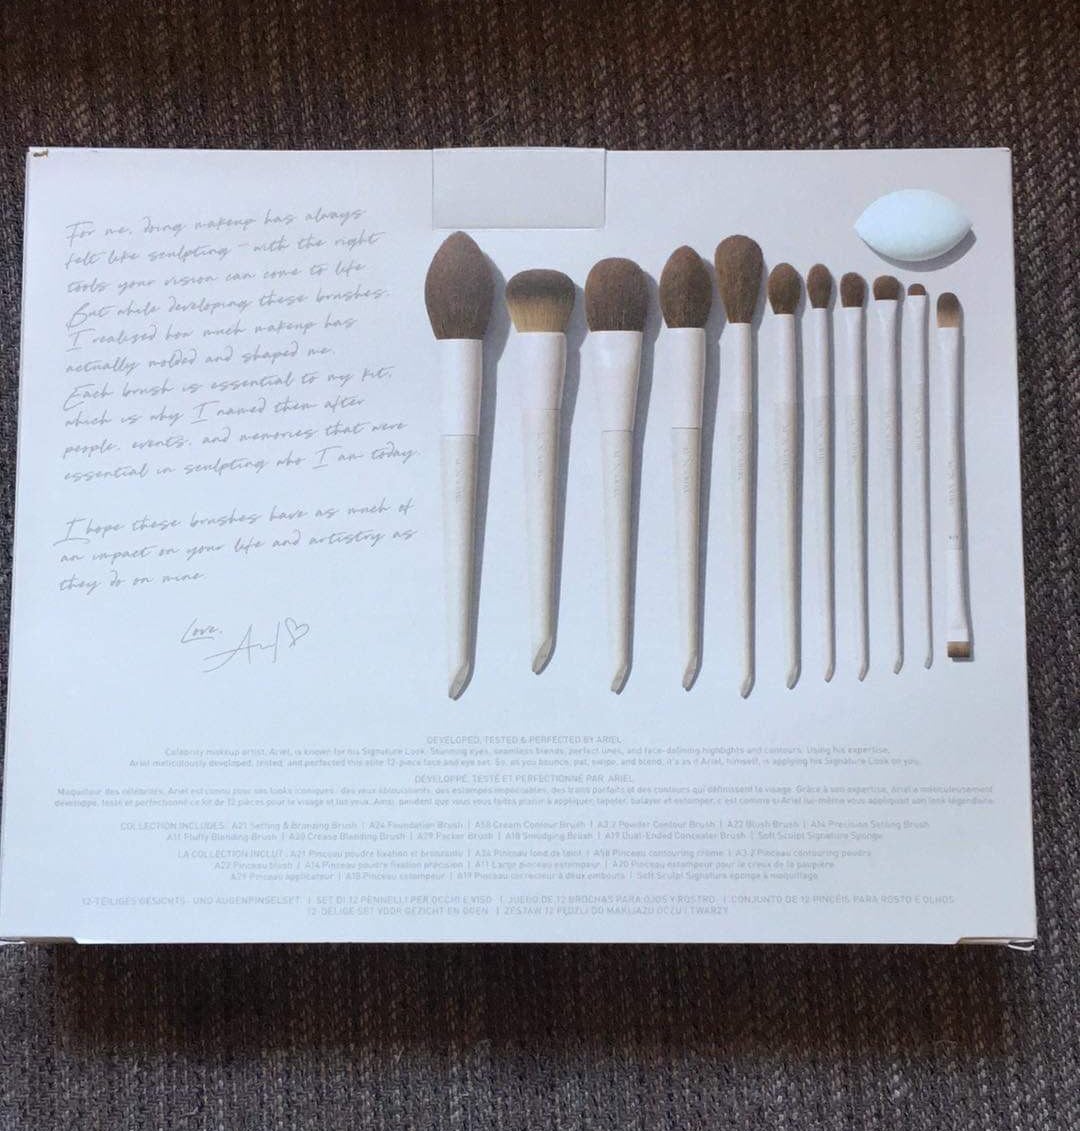 For me, doing makeup has always
felt like sculpting - with the right
tools your vision can come to life
But while developing these brushes,
I realized how much makeup has
actually molded and shaped me.
Each brush is essential to my kit,
which is why I named them after
people, events, and memories that were
essential in sculpting who I am today.
I hope these brushes have as much of
an impact on your life and artistry as
they do on mine.
Love,
Ariel
DEVELOPED, TESTED & PERFECTED BY ARIEL
Celebrity makeup artist, Ariel, is known for his Signature Look. Stunning eyes, seamless blends, perfect lines, and face-defining highlights and contours. Using his expertise,
Ariel meticulously developed, tested, and perfected this elite 12-piece face and eye set. So, as you bounce, pat, swipe, and blend, it's as if Ariel, himself, is applying his Signature Look on you.
DÉVELOPPÉ, TESTÉ ET PERFECTIONNÉ PAR ARIEL
Maquilleur des célébrités, Ariel est connu pour ses looks iconiques : des yeux éblouissants, des estompes impeccables, des traits parfaits et des contours qui définissent le visage. Grâce à son expertise, Ariel a méticuleusement
développé, testé et perfectionné ce kit de 12 pièces pour le visage et les yeux. Ainsi, pendant que vous vous faites plaisir à appliquer, tapoter, balayer et estomper, c'est comme si Ariel lui-même vous appliquait son look légendaire.
COLLECTION INCLUDES: A21 Setting & Bronzing Brush | A26 Foundation Brush | A58 Cream Contour Brush | A3.2 Powder Contour Brush | A22 Blush Brush | A14 Precision Setting Brush
A11 Fluffy Blending Brush | A20 Crease Blending Brush | A29 Packer Brush | A18 Smudging Brush | A19 Dual-Ended Concealer Brush | Soft Sculpt Signature Sponge
LA COLLECTION INCLUT : A21 Pinceau poudre fixation et bronzante | A26 Pinceau fond de teint | A58 Pinceau contouring crème | A3.2 Pinceau contouring poudre
A22 Pinceau blush | A14 Pinceau poudre fixation précision | A11 Large pinceau estompeur | A20 Pinceau estompeur pour le creux de la paupière
A29 Pinceau applicateur | A18 Pinceau estompeur | A19 Pinceau correcteur à deux embouts | Soft Sculpt Signature éponge à maquillage
12-TEILIGES GESICHTS- UND AUGENPINSELSET | SET DI 12 PENNELLI PER OCCHI E VISO | JUEGO DE 12 BROCHAS PARA OJOS Y ROSTRO | CONJUNTO DE 12 PINCÉIS PARA ROSTO E OLHOS
12-DELIGE SET VOOR GEZICHT EN OGEN | ZESTAW 12 PĘDZLI DO MAKIJAŻU OCZU I TWARZY